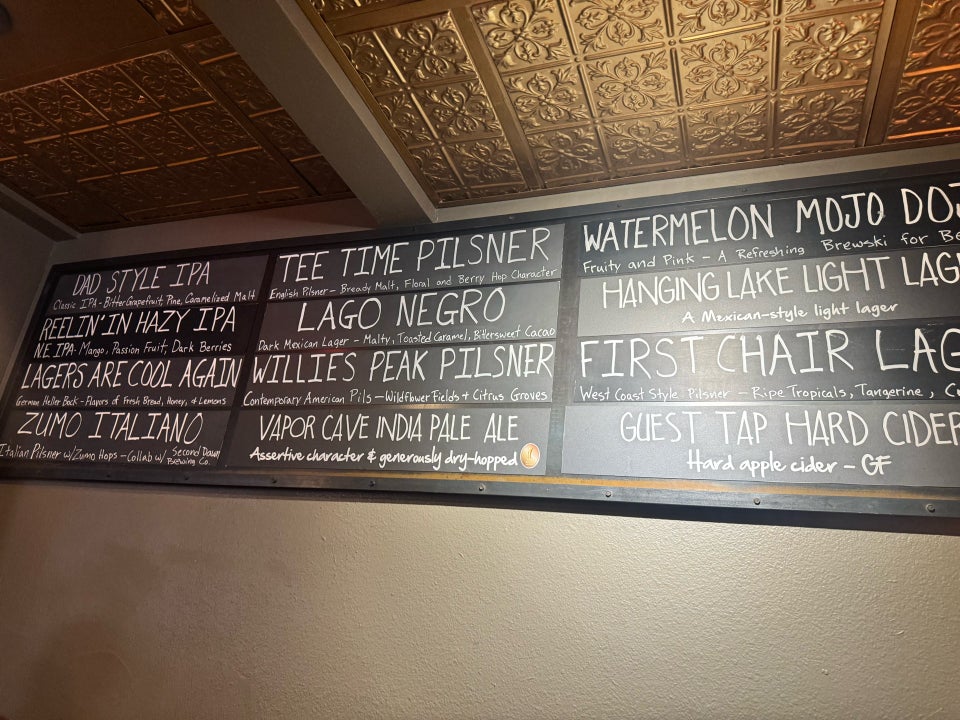 DAD STYLE IPA
Classic IPA - Bitter Grapefruit, Pine, Caramelized Malt
REELIN' IN HAZY IPA
NE IPA - Mango, Passion Fruit, Dark Berries
LAGERS ARE COOL AGAIN
German Heller Bock - Flavors of Fresh Bread, Honey, & Lemons
ZUMO ITALIANO
Italian Pilsner w/Zumo Hops - Collab w/ Second Dawn
Brewing Co.
TEE TIME PILSNER
English Pilsner - Bready Malt, Floral and Berry Hop Character
LAGO NEGRO
Dark Mexican Lager - Malty, Toasted Caramel, Bittersweet Cacao
WILLIES PEAK PILSNER
Contemporary American Pils - Wildflower Fields & Citrus Groves
VAPOR CAVE INDIA PALE ALE
Assertive character & generously dry-hopped
WATERMELON MOJO DOJ
Fruity and Pink - A Refreshing Brewski for Be
HANGING LAKE LIGHT LAG
A Mexican-style light lager
FIRST CHAIR LAG
West Coast Style Pilsner - Ripe Tropicals, Tangerine,
GUEST TAP HARD CIDER
Hard apple cider - GF